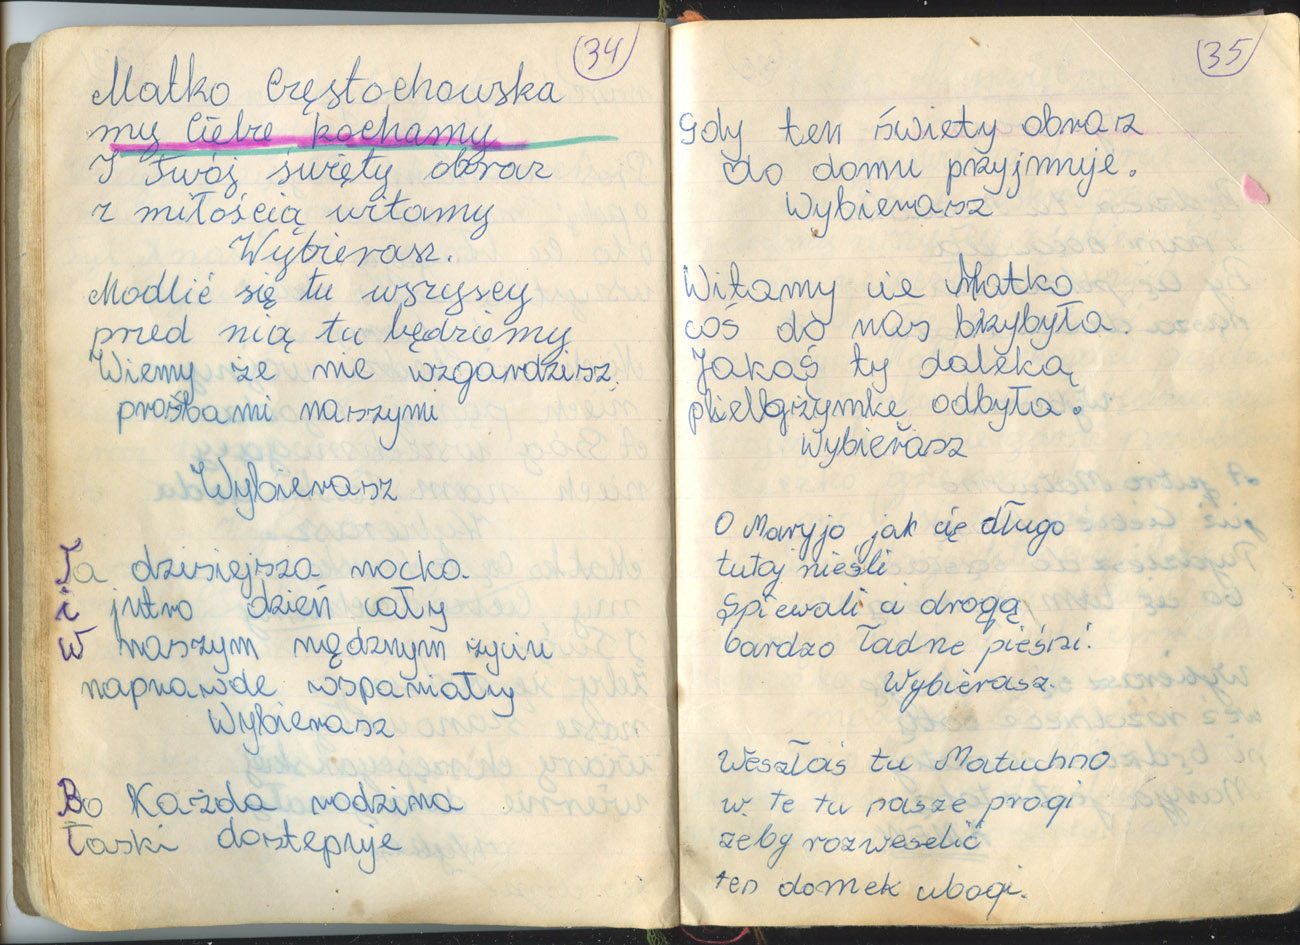 34
Matko Częstochowska
my Ciebie kochamy
I Twój święty obraz
z miłością witamy
Wybierasz.
Modlić się tu wszyscy
pred nią tu będziemy
Wiemy że nie wzgardzisz
prośbami naszymi
Wybierasz
Ta dzisiejsza nocka
i jutro dzień cały
w naszym nędznym życiu
naprawde wspaniały
Wybierasz
Bo Każda rodzina
łaski dostępuje
35
Gdy ten świety obraz
do domu przyjmuje.
Wybierasz
Witamy cie Matko
coś do nas bżybyła
Jakaś ty daleką
pielgżymkę odbyła.
Wybierasz
O Maryjo jak cię długo
tutaj nieśli
Śpiewali ci drogą
bardzo ładne pieśni.
Wybierasz,
Weszłaś tu Matuchno
w te tu nasze progi
żeby rozweselić
ten domek ubogi.